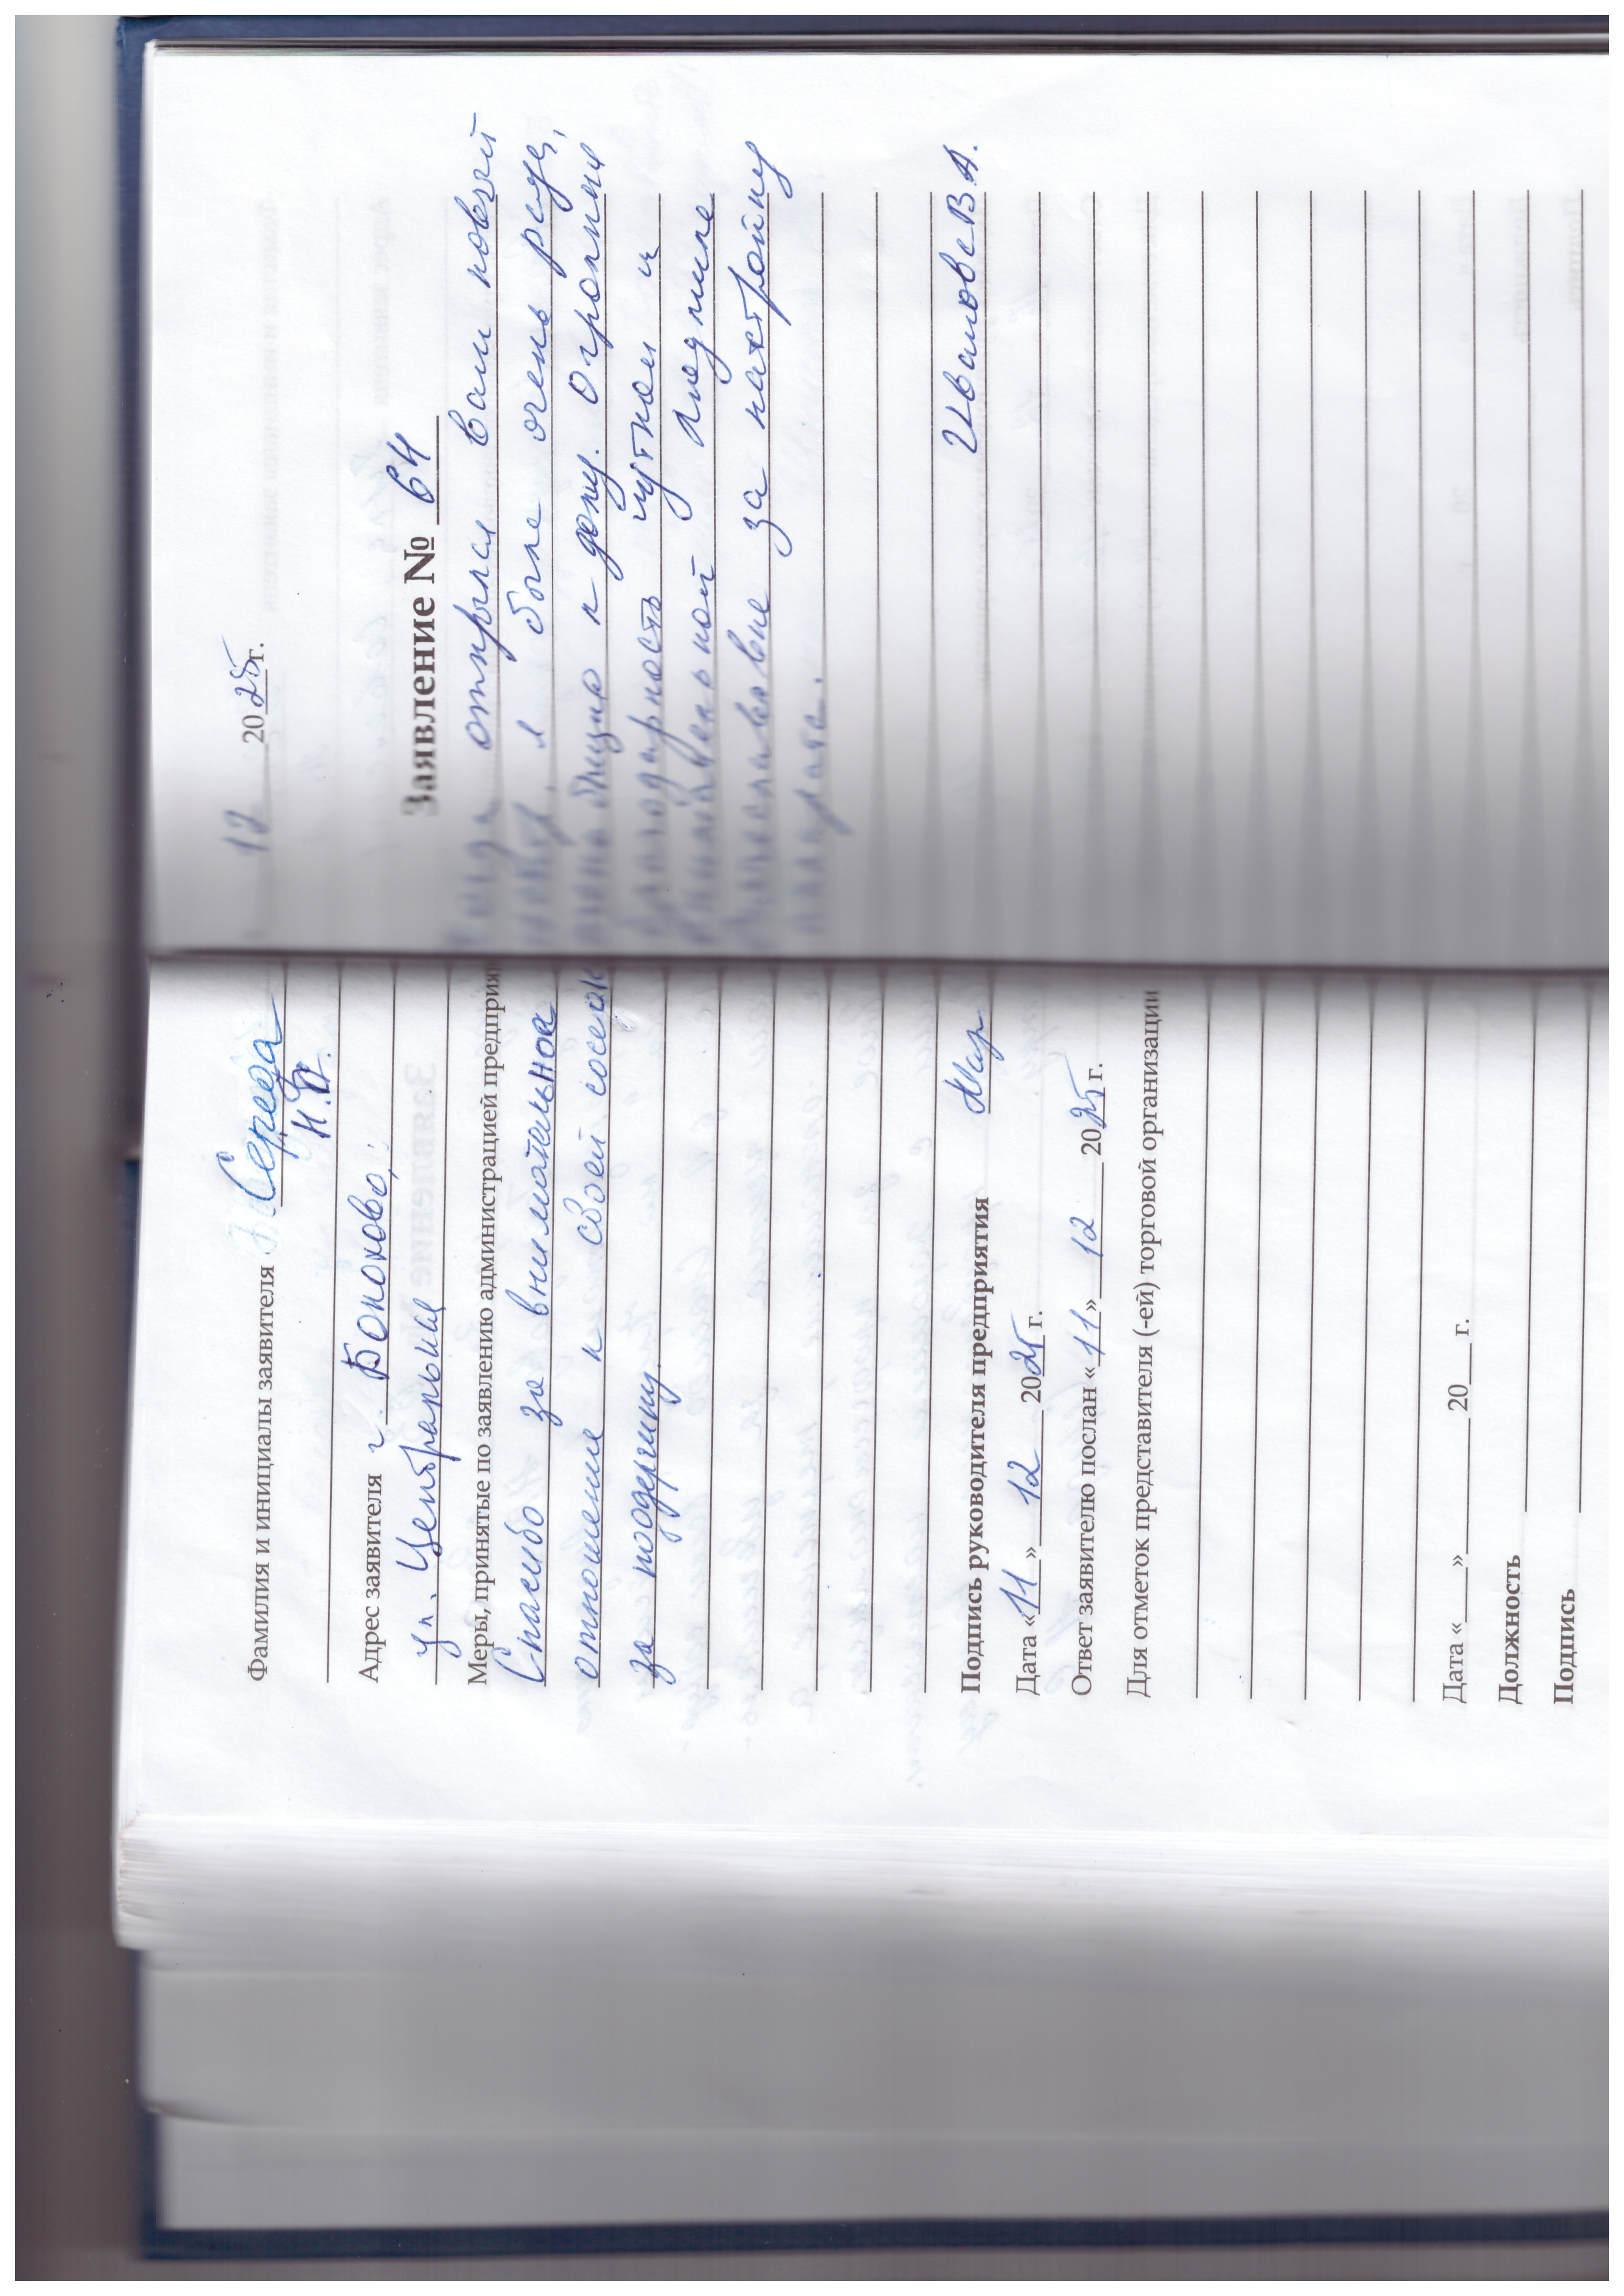 Фамилия и инициалы заявителя Середа
Н.П.
Адрес заявителя г. Боково,
ул. Центральная
Меры, принятые по заявлению администрацией предприя
Спасибо за внимательное
отношение к своей
за поддержку.
Подпись руководителя предприятия
Дата «11» 12 2025 г.
Ответ заявителю послан «11» 12 2025 г.
Для отметок представителя (-ей) торговой организации
Дата «___» ______ 20___ г.
Должность
Подпись
12 2025 г.
Заявление № 64
открылся Ваш новый
я была очень рада,
к дому. Огромная
благодарность чуткой и
внимательной Людмиле
Вячеславовне за настройку
аппарата.
Иванова В.А.